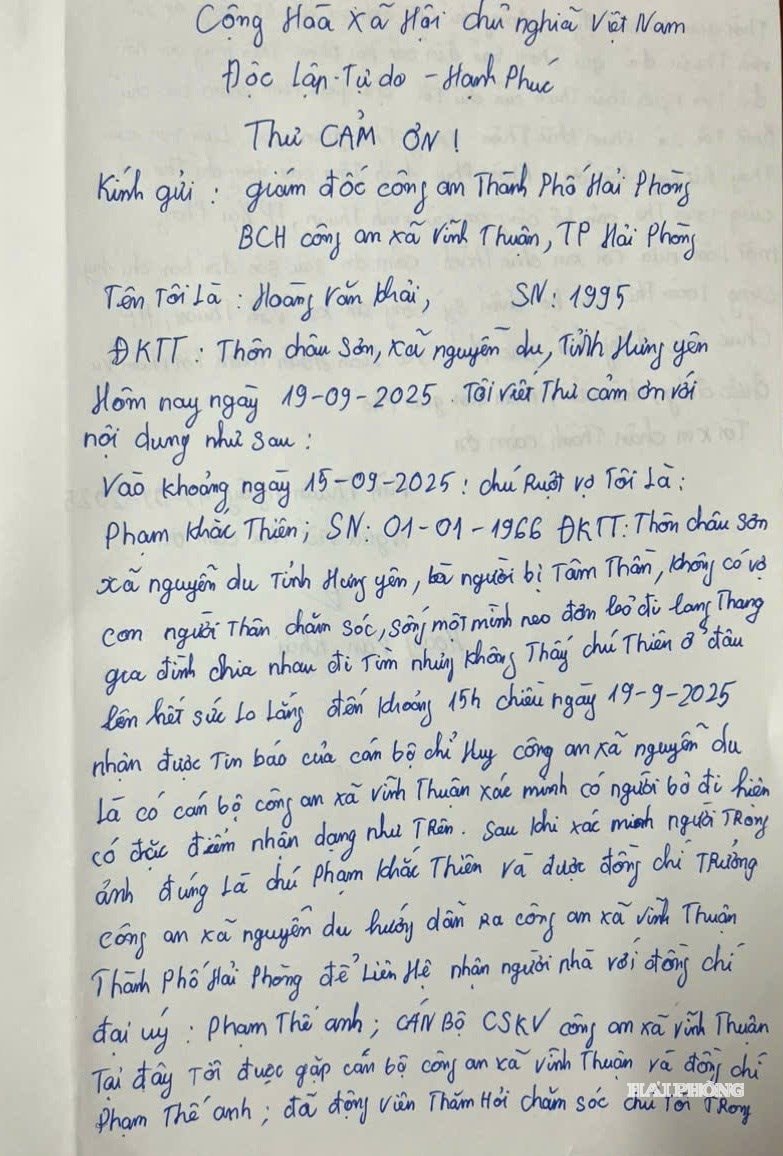 Cộng Hoà Xã Hội chủ nghĩa Việt Nam
Độc Lập-Tự do - Hạnh Phúc
Thư CẢM ƠN!
Kính gửi: giám đốc công an Thành Phố Hải Phòng
BCH công an xã Vĩnh Thuận, TP Hải Phòng
Tên Tôi Là: Hoàng Văn Khải, SN: 1995
ĐKTT: Thôn châu Sơn, xã nguyễn du, Tỉnh Hưng yên
Hôm nay ngày 19-09-2025 Tôi viết Thư cảm ơn với
nội dung như sau:
Vào khoảng ngày 15-09-2025: chú Ruột vợ Tôi Là:
Phạm Khắc Thiên; SN: 01-01-1966 ĐKTT: Thôn châu Sơn
xã nguyễn du Tỉnh Hưng yên, là người bị Tâm Thần, không có vợ
con người Thân chăm sóc, sống một mình neo đơn bỏ đi lang Thang
gia đình chia nhau đi Tìm nhưng không Thấy chú Thiên ở đâu
lên hết sức Lo Lắng đến khoảng 15h chiều ngày 19-9-2025
nhận được Tin báo của cán bộ chỉ Huy công an xã nguyễn du
Là có cán bộ công an xã Vĩnh Thuận xác minh có người bỏ đi hiện
có đặc điểm nhận dạng như TRên. Sau khi xác minh người TRong
ảnh đúng Là chú Phạm Khắc Thiên và được đồng chí TRưởng
công an xã nguyễn du hướng dẫn Ra công an xã Vĩnh Thuận
Thành Phố Hải Phòng để Liên Hệ nhận người nhà với đồng chí
đại uý: Phạm Thế anh; CÁN Bộ CSKV công an xã Vĩnh Thuận
Tại đây Tôi được gặp cán bộ công an xã Vĩnh Thuận và đồng chí
Phạm Thế anh; đã động viên Thăm Hỏi chăm sóc chú Tôi TRong
HẢI PHÒNG